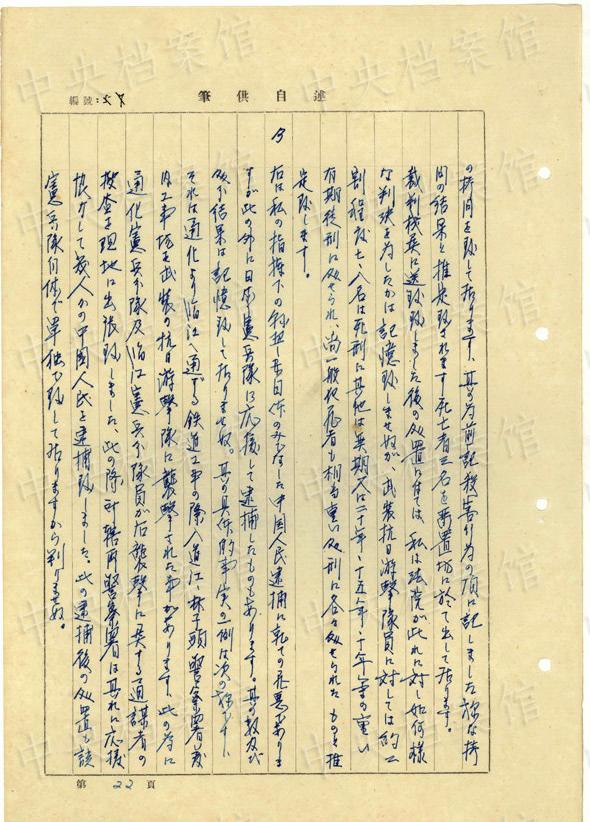 述自供筆
編號：58
の拷問を致して居ります、其の為前記殺害行為の項に記しました様な拷
問の結果と推定致されます死亡者三名を留置場に於て出して居ります。
裁判機關に送致しました後の処置に付ては、私は法院が此れに対し如何様
な判決を為したかは記憶致しませぬが、武装抗日游撃隊員に対しては約二
割程度七、八名は死刑に其他は無期又は二十年、十五年、十年等の重い
有期徒刑に処せられ、尚一般犯罪者も相当重い処刑に各々処せられたものと推
定致します。
右は私の指揮下の
中国人民逮捕に就ての罪悪でありま
すが此の外に日本憲兵隊に応援して逮捕したものもあります。其の数及び
結果は記憶致して居りませぬ。其の具体的事実の一例は次の様です、
それは通化より臨江に通ずる鉄道工事の際八道江、林子頭警察署
工事場を武装の抗日游撃隊に襲撃された事があります、此の為に
通化憲兵分隊及臨江憲兵分隊員が右襲撃に対する通謀者の
捜査を現地に出張致しました、此の際計轄両警察署は其れに応援
協力して幾人かの中国人民を逮捕致しました。此の逮捕後の処置は該
憲兵隊自体で単独で致して居りますから判りませぬ。
第 22 頁
中央档案馆